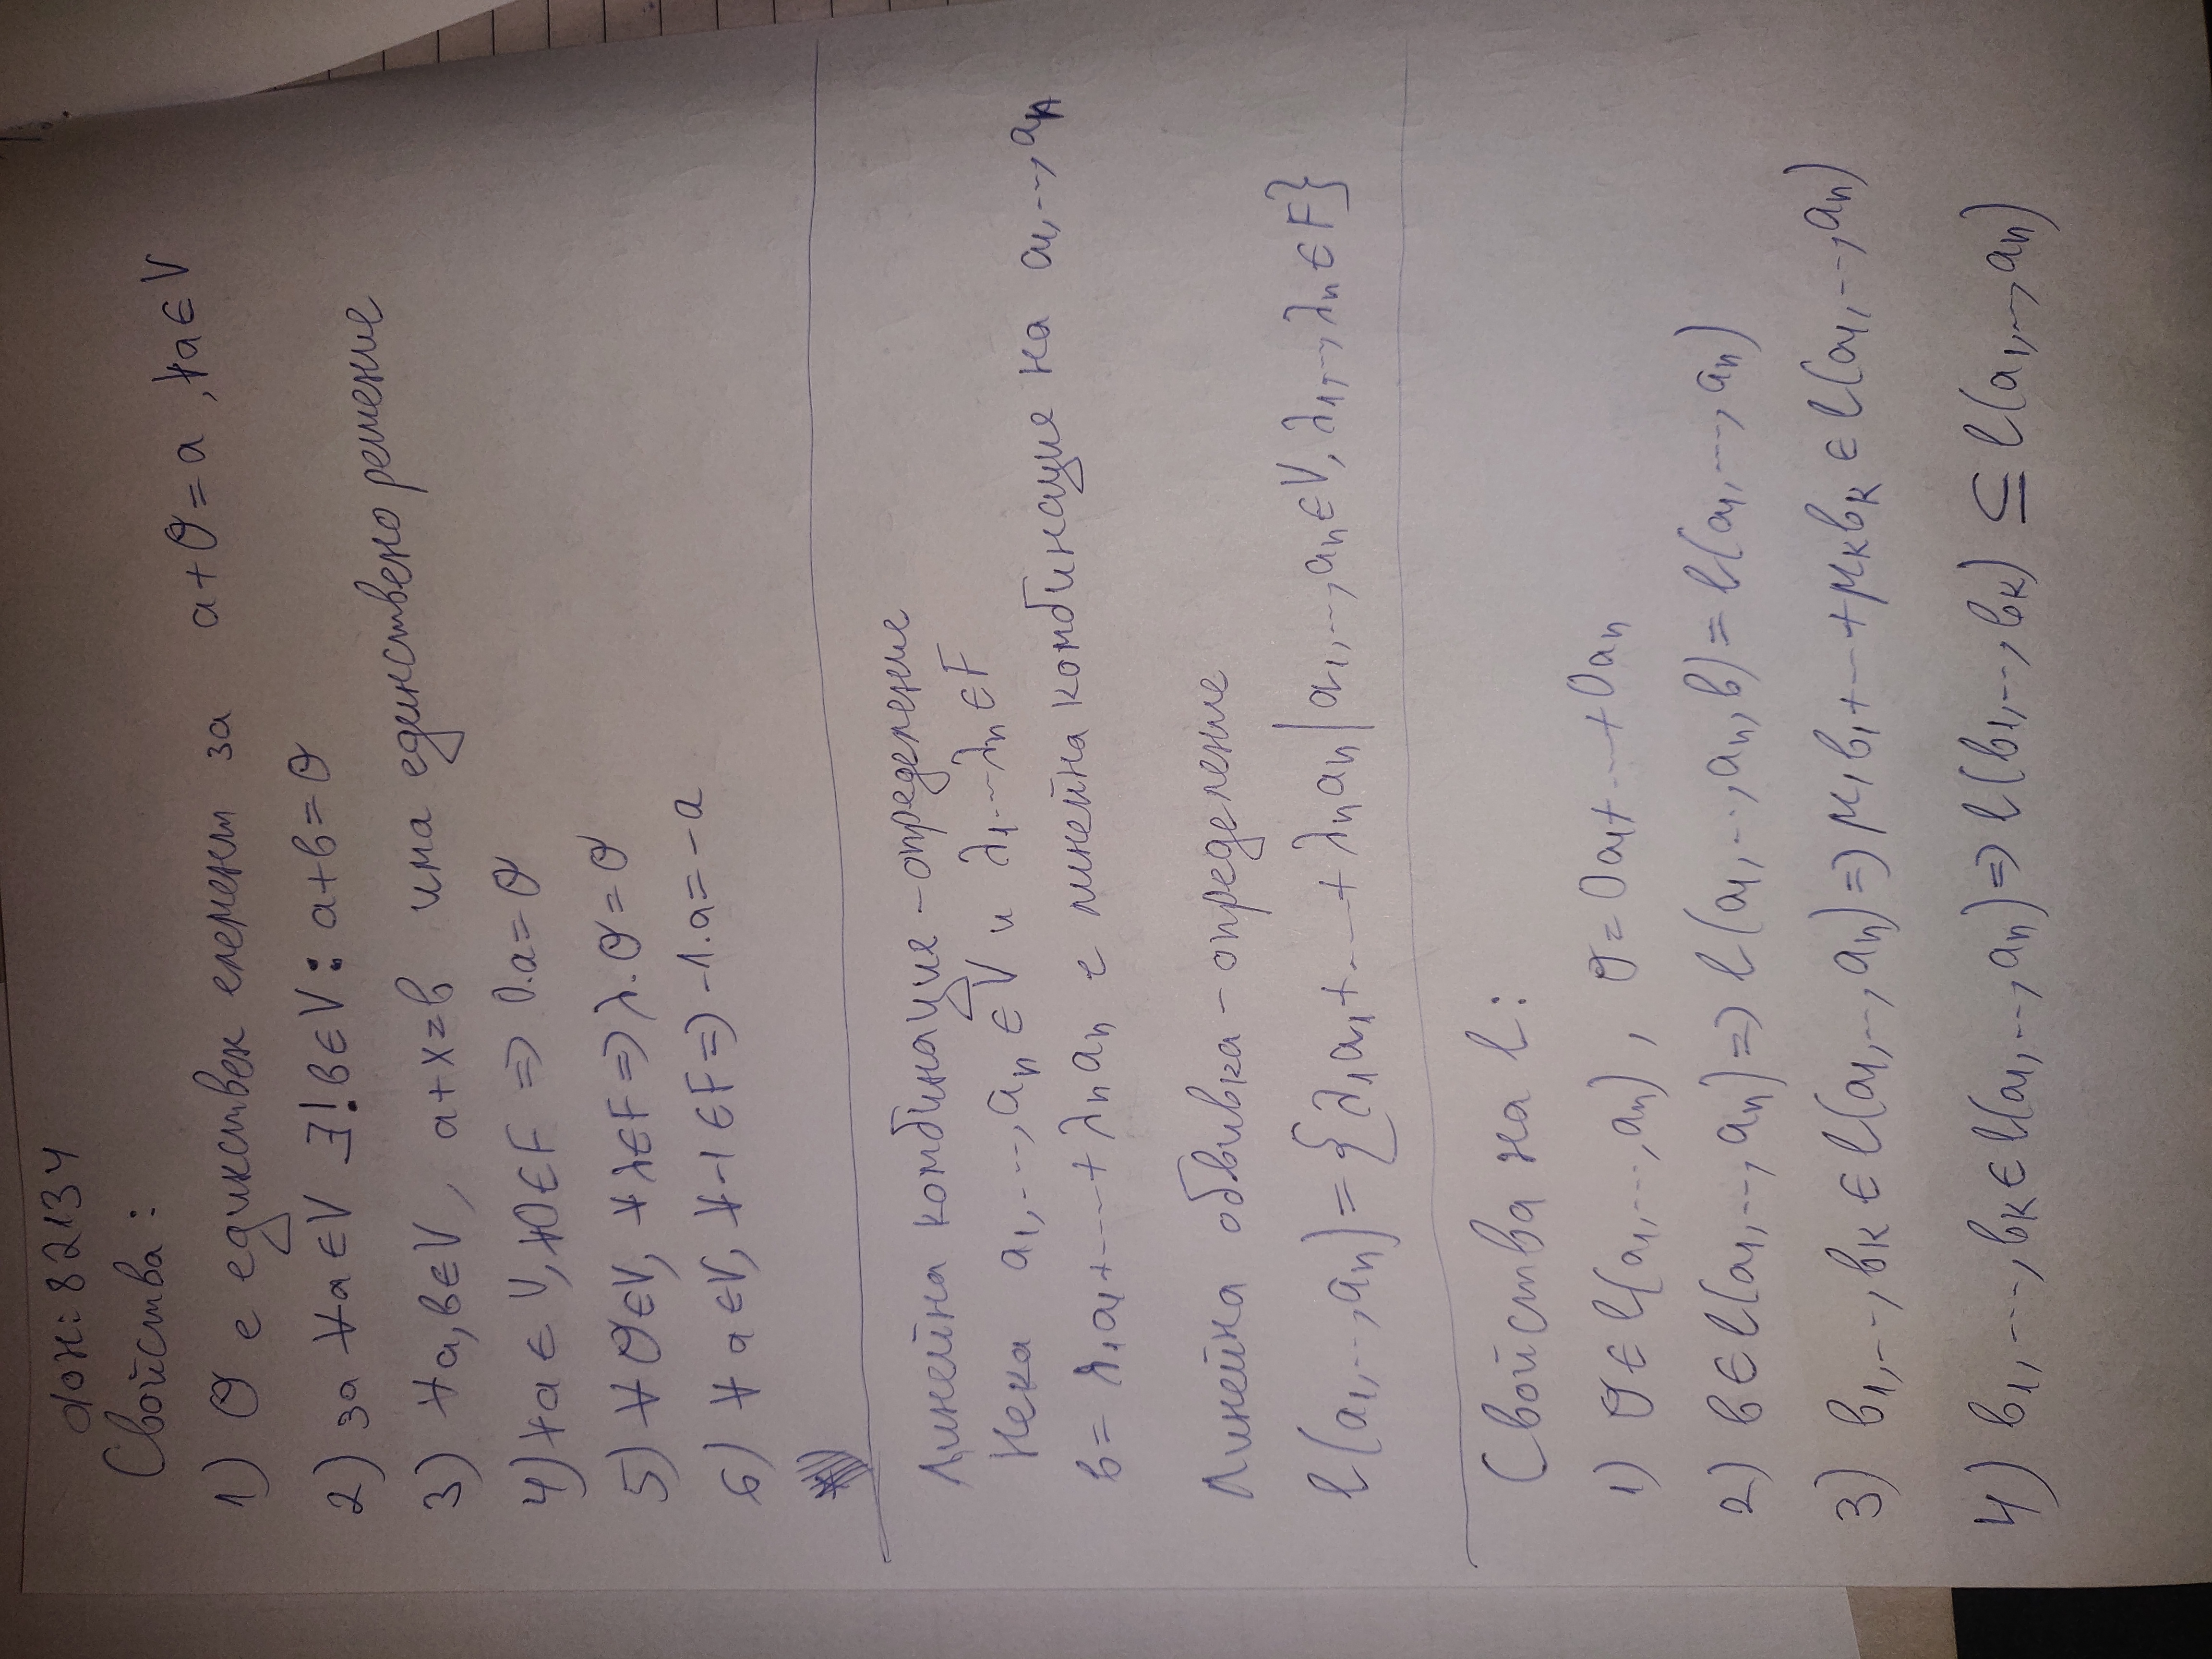 фон: 82134
Свойства:
1) O е единствен елемент за a+O=a, ∀a∈V
2) за ∀a∈V ∃!b∈V: a+b=O
3) ∀a,b∈V, a+x=b има единствено решение
4) ∀a∈V, ∀0∈F => 0.a=O
5) ∀O∈V, ∀λ∈F => λ.O=O
6) ∀a∈V, ∀-1∈F => -1.a=-a
Линейна комбинация - определение
Нека a₁,...,aₙ∈V и λ₁...λₙ∈F
b= λ₁a₁+...+λₙaₙ е линейна комбинация на a₁,...,aₙ
Линейна обвивка - определение
l(a₁,...,aₙ)={λ₁a₁+...+λₙaₙ|a₁,...,aₙ∈V, λ₁,...,λₙ∈F}
Свойства на l:
1) O∈l(a₁,...,aₙ), O=0a₁+...+0aₙ
2) b∈l(a₁,...,aₙ)=> l(a₁,...,aₙ,b)=l(a₁,...,aₙ)
3) b₁,...,bₖ∈l(a₁,...,aₙ)=> μ₁b₁+...+μₖbₖ∈l(a₁,...,aₙ)
4) b₁,...,bₖ∈l(a₁,...,aₙ)=> l(b₁,...,bₖ) ⊆ l(a₁,...,aₙ)